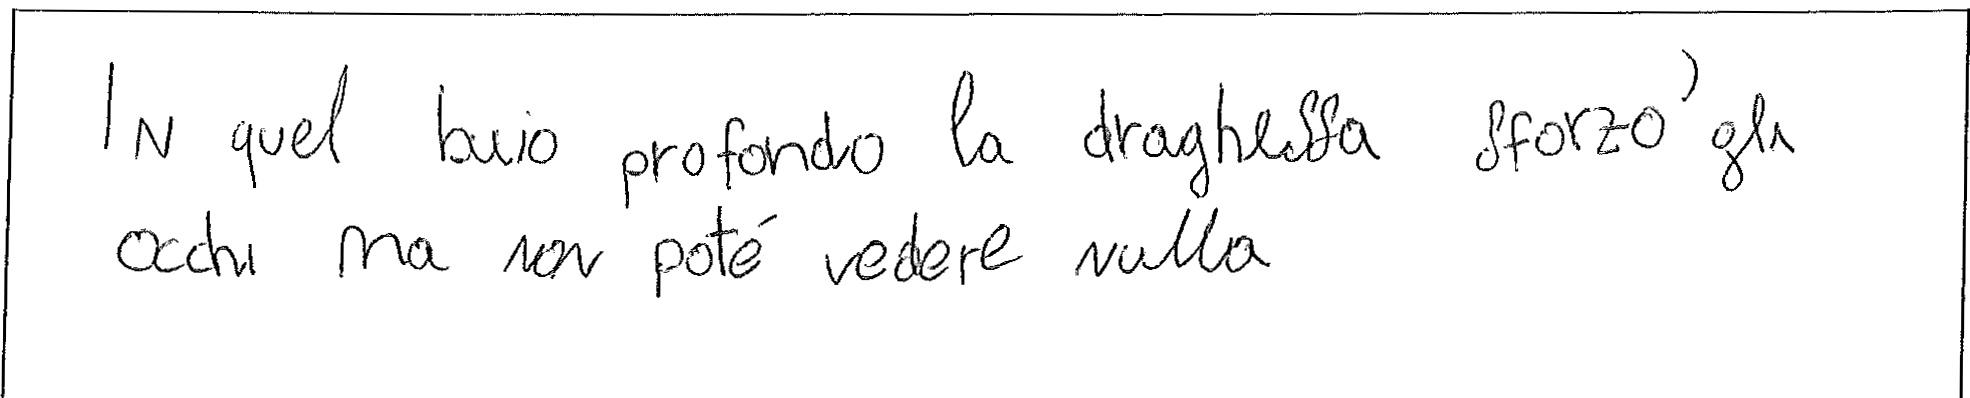 In quel buio profondo la draghessa sforzo' gli
occhi ma non poté vedere nulla